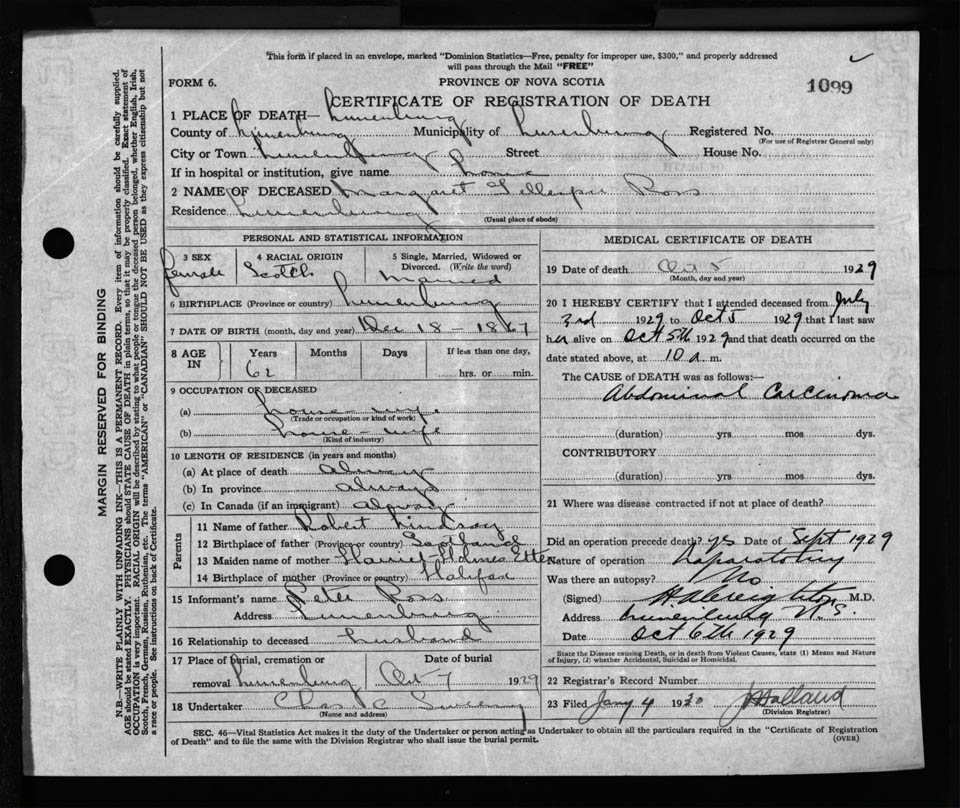 This form if placed in an envelope, marked "Dominion Statistics—Free, penalty for improper use, $300," and properly addressed
will pass through the Mail "FREE"
FORM 6.
PROVINCE OF NOVA SCOTIA
1099
CERTIFICATE OF REGISTRATION OF DEATH
1 PLACE OF DEATH— Lunenburg
County of Lunenburg Municipality of Lunenburg Registered No.
(For use of Registrar General only)
City or Town Lunenburg Street House No.
If in hospital or institution, give name home
2 NAME OF DECEASED Margaret Gillespie Ross
Residence Lunenburg
(Usual place of abode)
PERSONAL AND STATISTICAL INFORMATION
3 SEX female
4 RACIAL ORIGIN Scotch
5 Single, Married, Widowed or
Divorced. (Write the word) married
6 BIRTHPLACE (Province or country) Lunenburg
7 DATE OF BIRTH (month, day and year) Dec 18 - 1867
8 AGE IN Years Months Days If less than one day,
62 hrs. or min.
9 OCCUPATION OF DECEASED
(a) house-wife
(Trade or occupation or kind of work)
(b) house-wife
(Kind of industry)
10 LENGTH OF RESIDENCE (in years and months)
(a) At place of death always
(b) In province always
(c) In Canada (if an immigrant) always
Parents
11 Name of father Robert Lindsay
12 Birthplace of father (Province or country) Scotland
13 Maiden name of mother Harriet Holmes Etter
14 Birthplace of mother (Province or country) Halifax
15 Informant's name Peter Ross
Address Lunenburg
16 Relationship to deceased husband
17 Place of burial, cremation or Date of burial
removal Lunenburg Oct 7 1929
18 Undertaker Chas C Sweeny
(Name and address)
MEDICAL CERTIFICATE OF DEATH
19 Date of death Oct 5 1929
(Month, day and year)
20 I HEREBY CERTIFY that I attended deceased from July
3rd 1929 to Oct 5 1929 that I last saw
her alive on Oct 5th 1929 and that death occurred on the
date stated above, at 10 a. m.
The CAUSE OF DEATH was as follows:—
Abdominal Carcinoma
(duration) yrs mos dys.
CONTRIBUTORY
(duration) yrs mos dys.
21 Where was disease contracted if not at place of death?
Did an operation precede death? yes Date of Sept 1929
Nature of operation Laparotomy
Was there an autopsy? No
(Signed) H A Creighton M.D.
Address Lunenburg N.S.
Date Oct 6th 1929
State the Disease causing Death, or in death from Violent Causes, state (1) Means and Nature
of Injury, (2) whether Accidental, Suicidal or Homicidal.
22 Registrar's Record Number
23 Filed Jany 4 1930 J Holland
(Division Registrar)
SEC. 46—Vital Statistics Act makes it the duty of the Undertaker or person acting as Undertaker to obtain all the particulars required in the "Certificate of Registration
of Death" and to file the same with the Division Registrar who shall issue the burial permit.
(OVER)
MARGIN RESERVED FOR BINDING
N.B.—WRITE PLAINLY WITH UNFADING INK—THIS IS A PERMANENT RECORD. Every item of information should be carefully supplied.
AGE should be stated EXACTLY. PHYSICIANS should STATE CAUSE OF DEATH in plain terms, so that it may be properly classified. Exact statement of
OCCUPATION is very important. RACIAL ORIGIN will be described by stating to what people or tongue the deceased person belonged, whether English, Irish,
Scotch, French, German, Russian, Ruthenian, etc. The terms "AMERICAN" or "CANADIAN" SHOULD NOT BE USED as they express citizenship but not
a race or people. See instructions on back of Certificate.